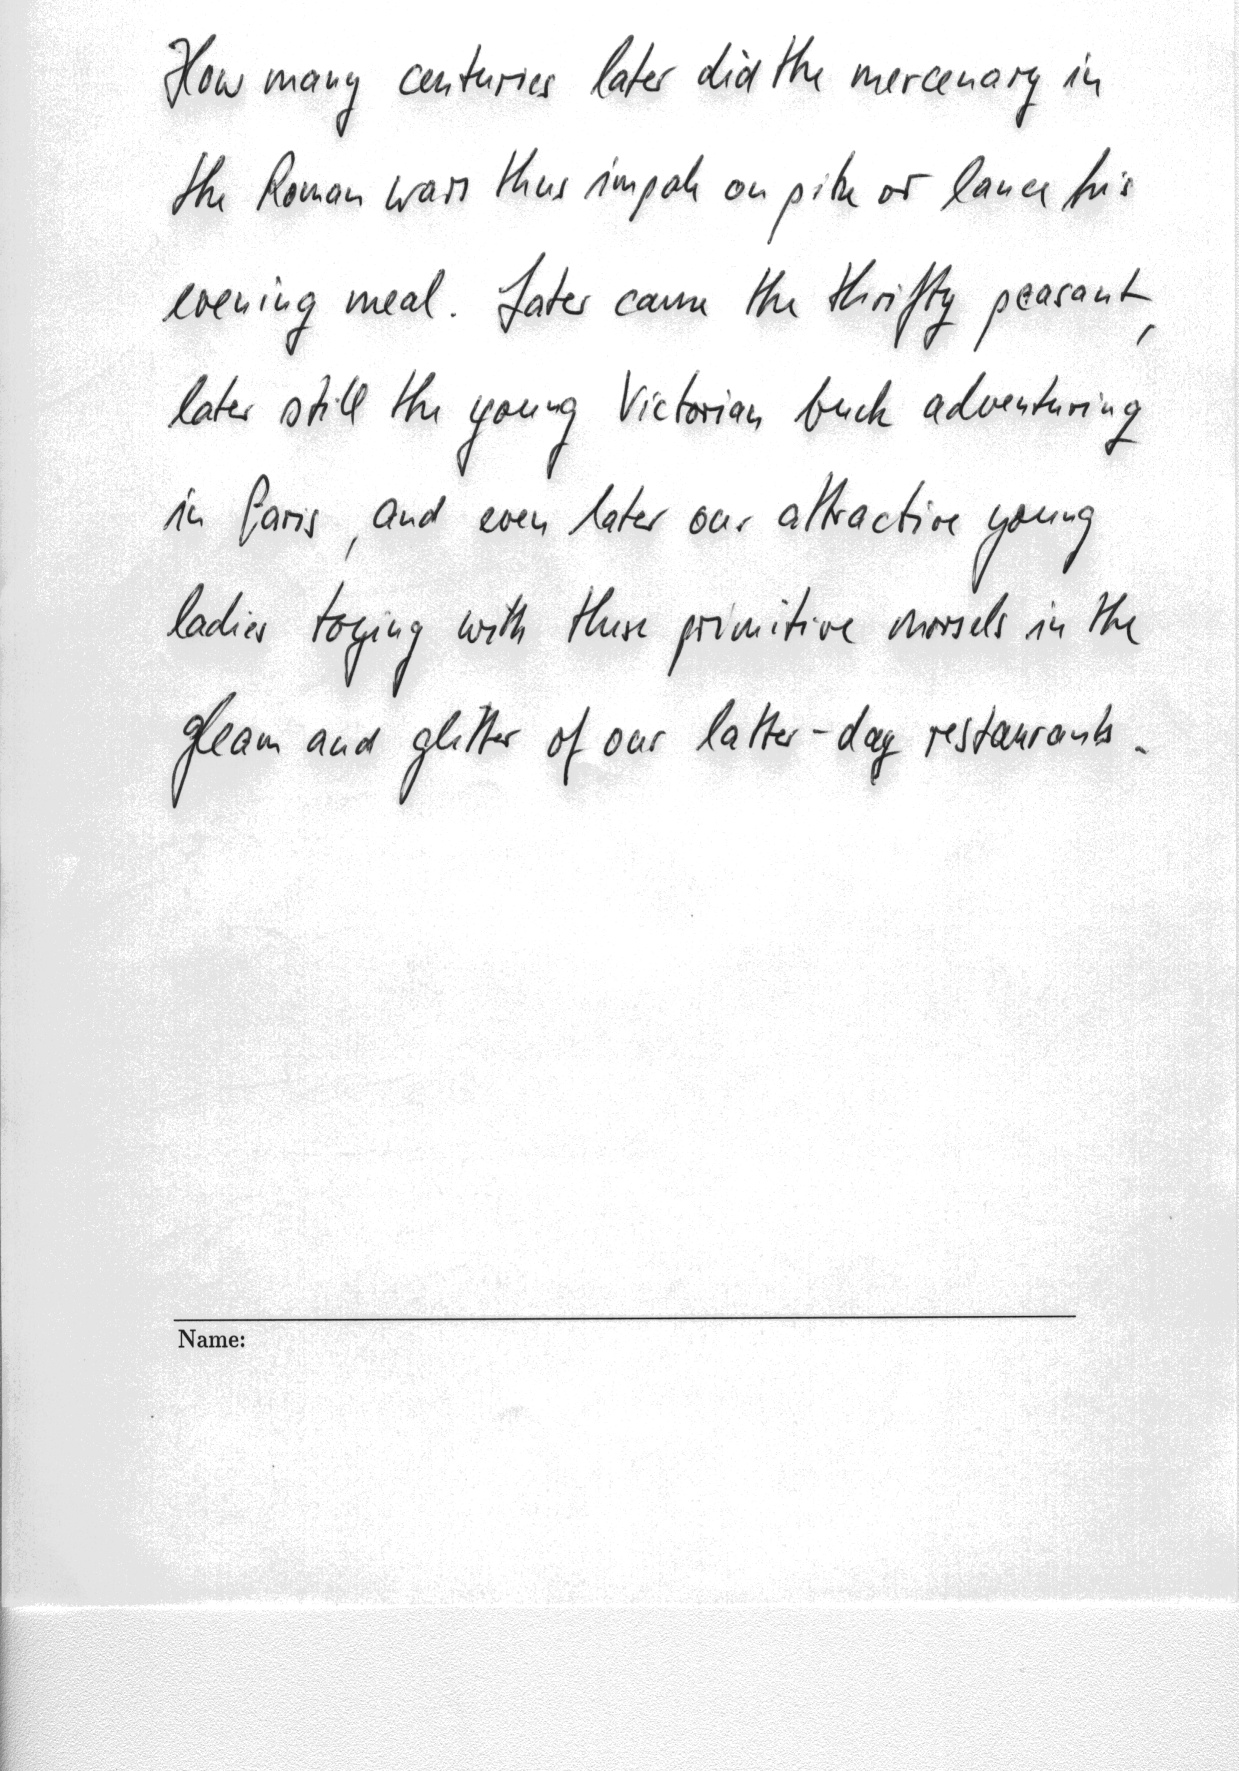 How many centuries later did the mercenary in
the Roman wars thus impale on pike or lance his
evening meal. Later came the thrifty peasant,
later still the young Victorian buck adventuring
in Paris, and even later our attractive young
ladies toying with these primitive morsels in the
gleam and glitter of our latter-day restaurants.
Name: